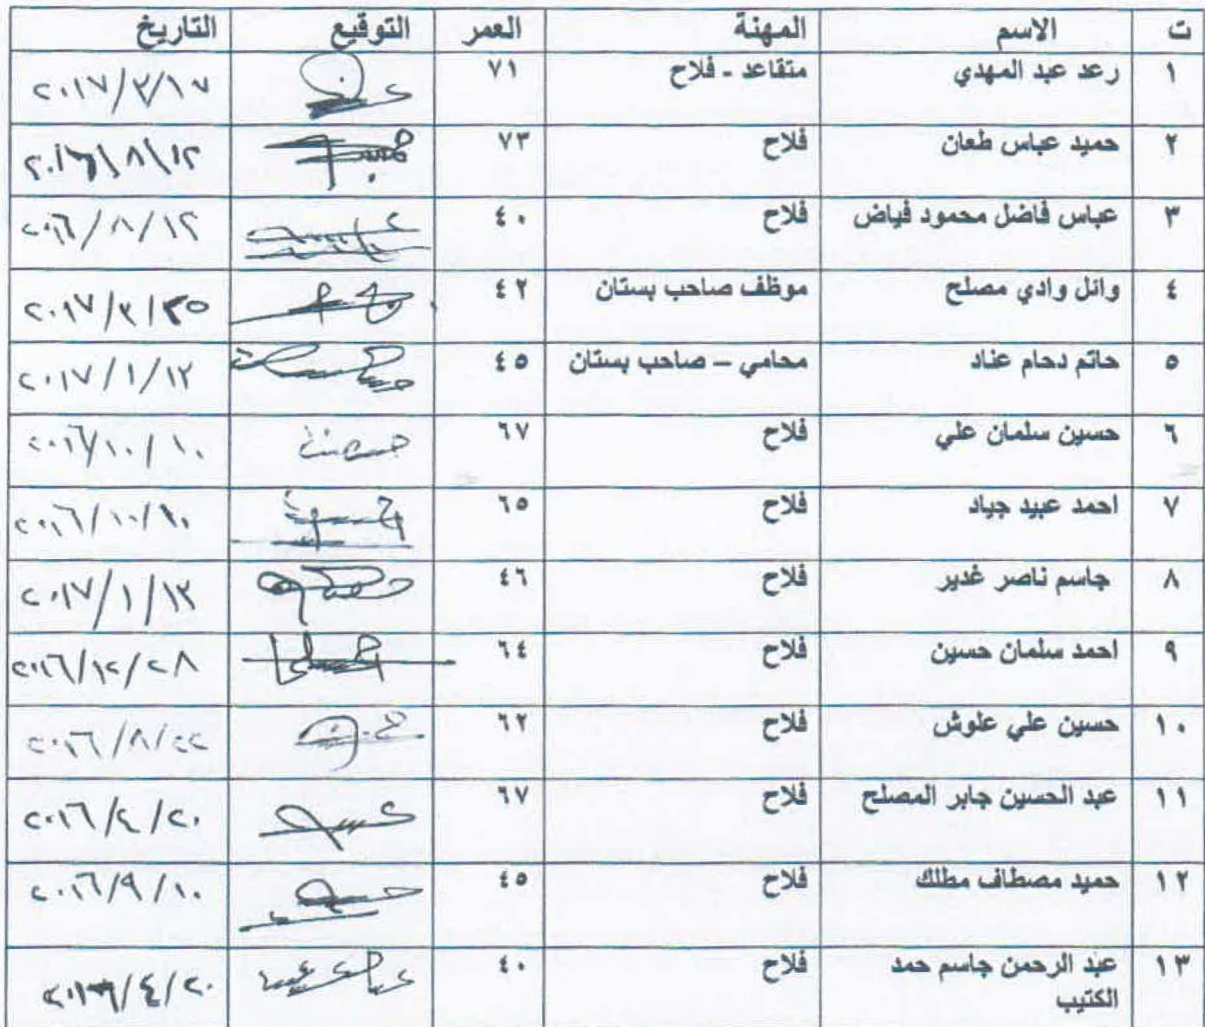 ت الاسم المهنة العمر التوقيع التاريخ
١ رعد عبد المهدي متقاعد - فلاح ٧١ ٢٠١٧/٢/١٧
٢ حميد عباس طعان فلاح ٧٣ ٢٠١٦/٨/١٢
٣ عباس فاضل محمود فياض فلاح ٤٠ ٢٠١٦/٨/١٢
٤ وائل وادي مصلح موظف صاحب بستان ٤٢ ٢٠١٧/٢/٢٥
٥ حاتم دحام عناد محامي – صاحب بستان ٤٥ ٢٠١٧/١/١٢
٦ حسين سلمان علي فلاح ٦٧ ٢٠١٦/١٠/١٠
٧ احمد عبيد جياد فلاح ٦٥
٨ جاسم ناصر غدير فلاح ٤٦ ٢٠١٧/١/١٢
٩ احمد سلمان حسين فلاح ٦٤ ٢٠١٦/١٢/٢٨
١٠ حسين علي علوش فلاح ٦٢ ٢٠١٦/٨/٢٢
١١ عبد الحسين جابر المصلح فلاح ٦٧ ٢٠١٦/٤/٢٠
١٢ حميد مصطاف مطلك فلاح ٤٥ ٢٠١٦/٩/١٠
١٣ عبد الرحمن جاسم حمد فلاح ٤٠ ٢٠١٦/٤/٢٠
الكتيب